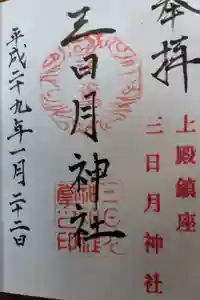 奉拝
上殿鎮座
三日月神社
三日月神社
平成二十九年一月二十二日